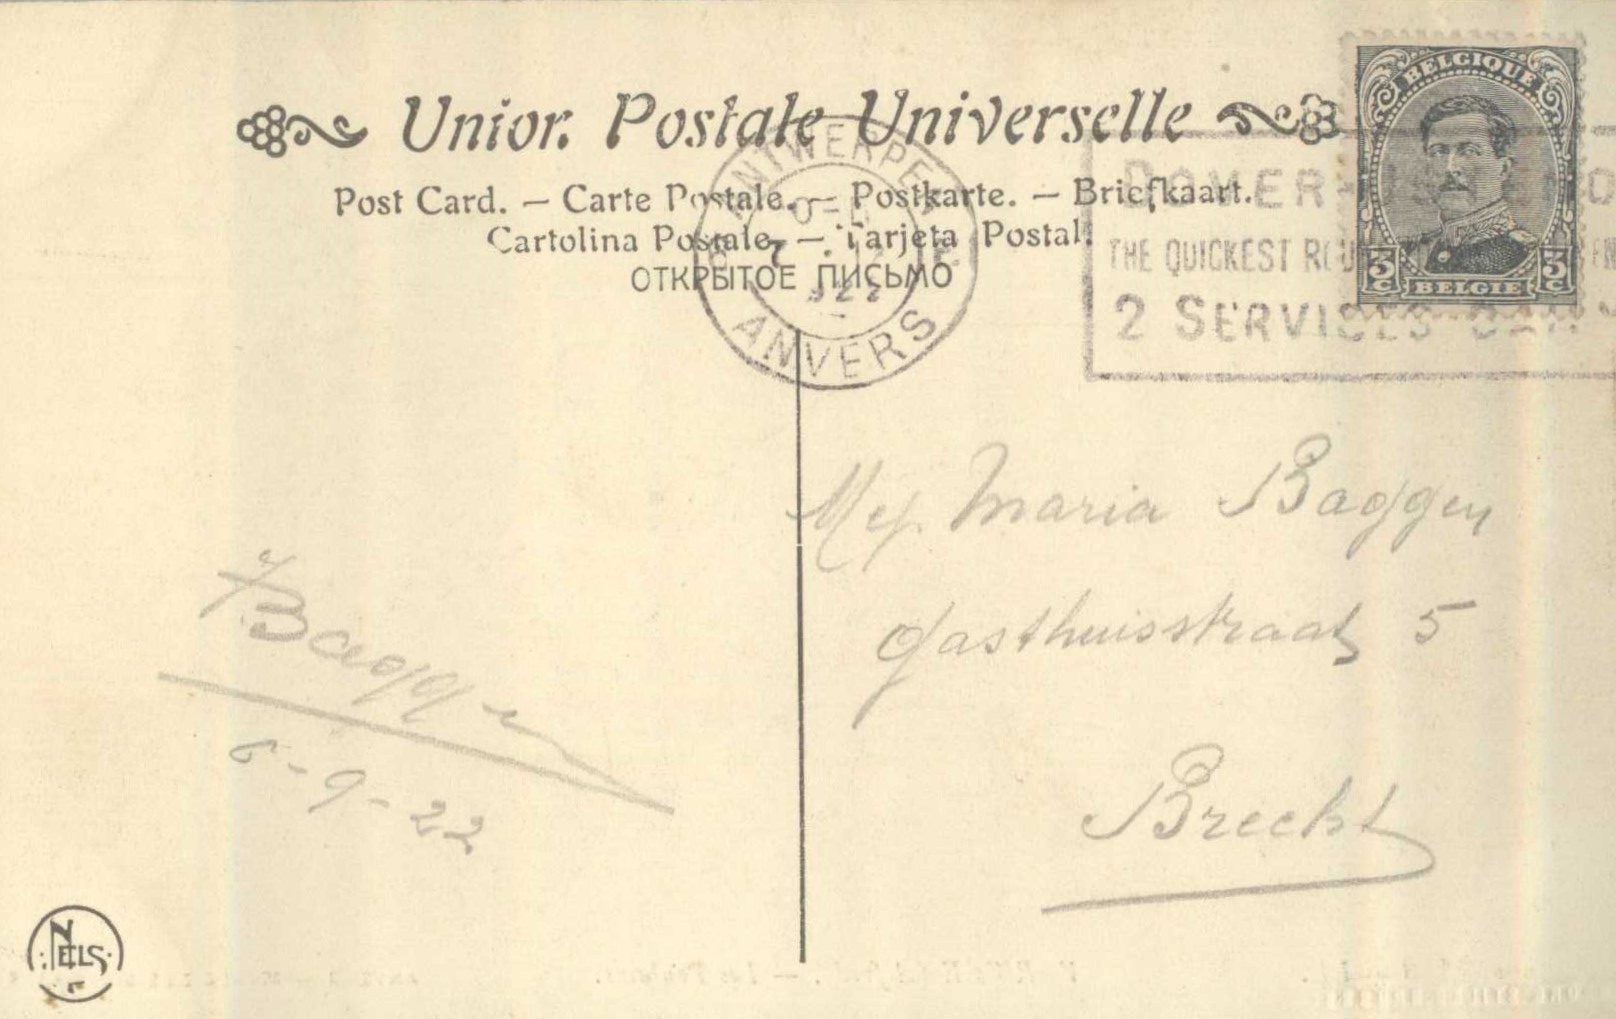 Union Postale Universelle
Post Card. — Carte Postale. — Postkarte. — Briefkaart.
Cartolina Postale. — Tarjeta Postal.
ОТКРЫТОЕ ПИСЬМО
ANTWERPEN
ANVERS
DOVER
THE QUICKEST
2 SERVICES
BELGIQUE
3 C 3 C
BELGIE
Mej. Maria Baggen
Gasthuisstraat 5
Brecht
Baggen
6-9-22
NELS